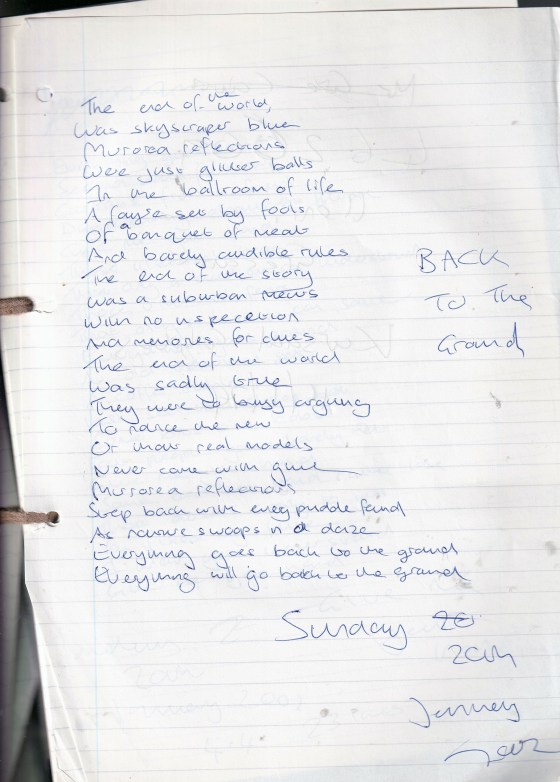 The end of the world,
Was skyscraper blue
Mirrored reflections
Were just glitter balls
In the ballroom of life
A set by fools
Of a banquet of meat
And barely audible rules
The end of the story
Was a suburban news
With no inspection
And memories for clues
The end of the world
Was sadly true
They were to busy arguing
To notice the new
Or that real models
Never come with glue
Mirrored reflections
Step back with every puddle found
As nature swoops in a daze
Everything goes back to the ground
Everything will go back to the ground
BACK
To The
Ground
Sunday 20
20th